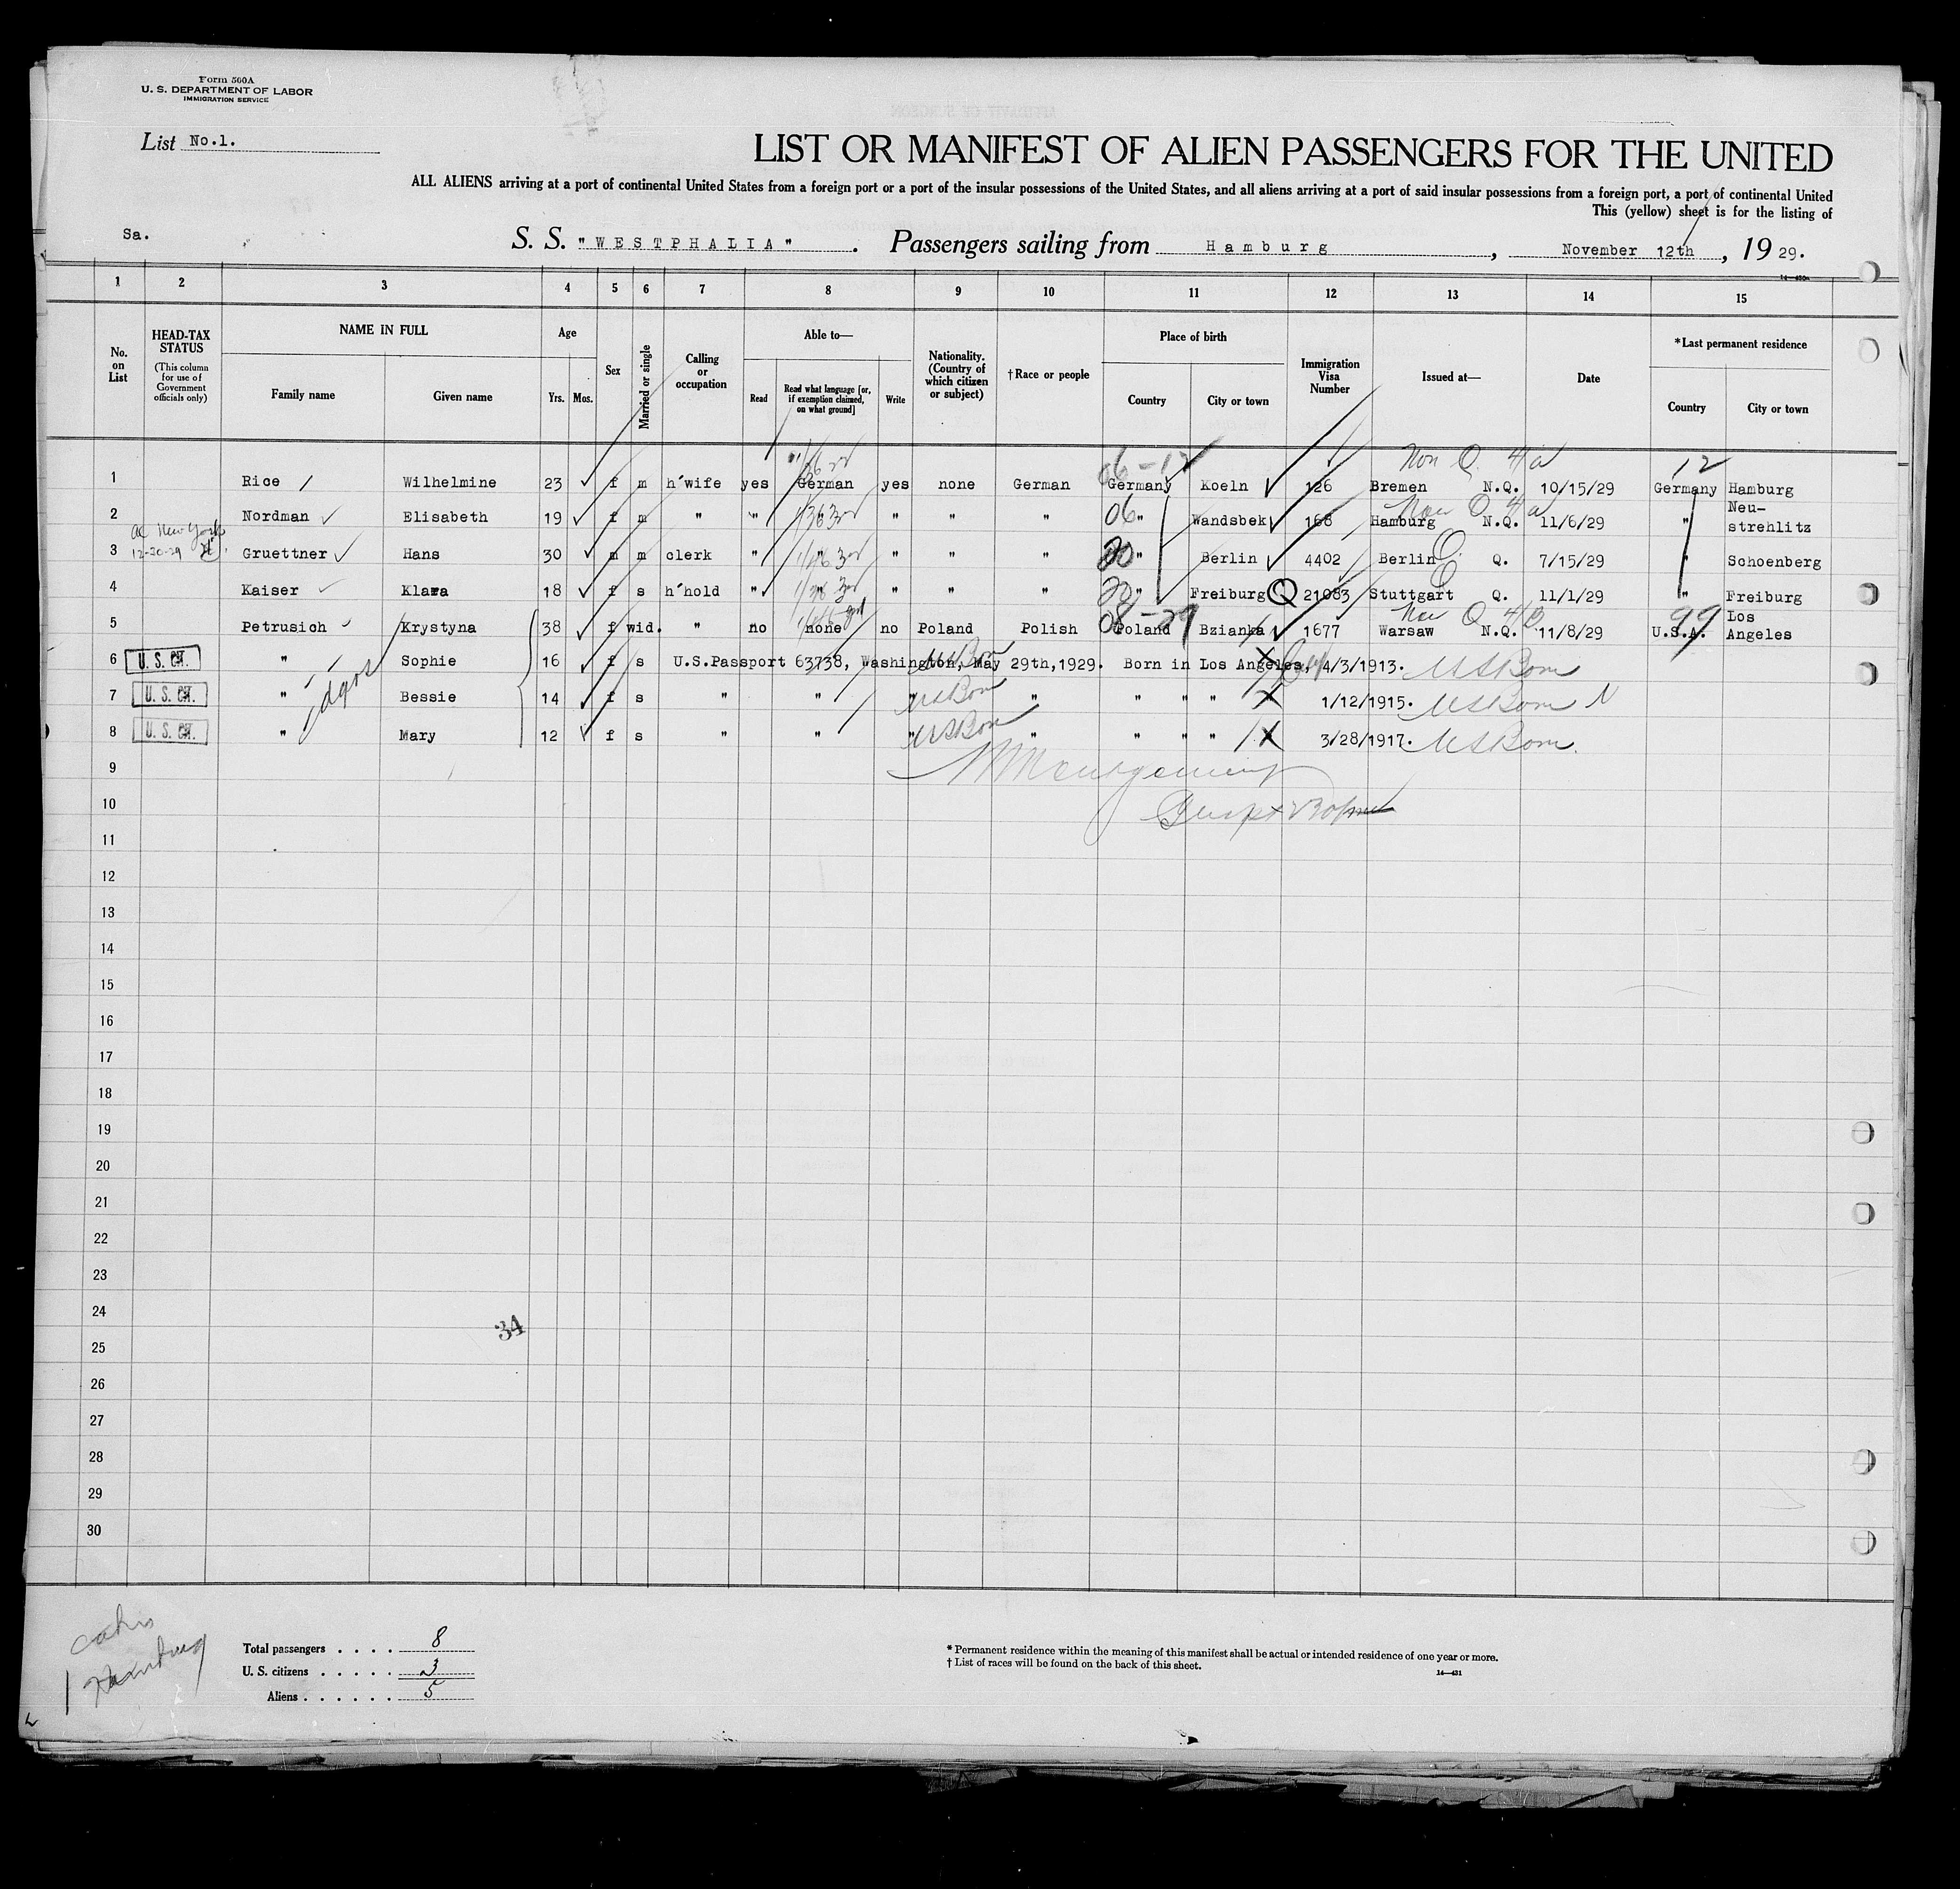 Form 500A
U. S. DEPARTMENT OF LABOR
IMMIGRATION SERVICE
List No.1.
LIST OR MANIFEST OF ALIEN PASSENGERS FOR THE UNITED
ALL ALIENS arriving at a port of continental United States from a foreign port or a port of the insular possessions of the United States, and all aliens arriving at a port of said insular possessions from a foreign port, a port of continental United
This (yellow) sheet is for the listing of
Sa.
S. S. "WESTPHALIA" . Passengers sailing from Hamburg , November 12th , 19 29.
1 2 3 4 5 6 7 8 9 10 11 12 13 14 15
No. on List
HEAD-TAX STATUS
(This column for use of Government officials only)
NAME IN FULL
Family name Given name
Age
Yrs. Mos.
Sex
Married or single
Calling or occupation
Able to—
Read
Read what language [or, if exemption claimed, on what ground]
Write
Nationality. (Country of which citizen or subject)
† Race or people
Place of birth
Country City or town
Immigration Visa Number
Issued at—
Date
*Last permanent residence
Country City or town
Non Q. 4a
06-12 12
1 Rice Wilhelmine 23 f m h'wife yes German yes none German Germany Koeln 126 Bremen N.Q. 10/15/29 Germany Hamburg
2 Nordman Elisabeth 19 f m " " " " " " 06 " Wandsbek 168 Hamburg N.Q. 11/6/29 " Neu-strehlitz
New York
12-20-29
3 Gruettner Hans 30 m m clerk " " " " " " Berlin 4402 Berlin Q. 7/15/29 " Schoenberg
4 Kaiser Klara 18 f s h'hold " " " " " " Freiburg Q 21083 Stuttgart Q. 11/1/29 " Freiburg
08-29 99
5 Petrusich Krystyna 38 f wid. " no none no Poland Polish Poland Bzianka 1677 Warsaw N.Q. 11/8/29 U.S.A. Los Angeles
6 U. S. CIT. " Sophie 16 f s U.S.Passport 63738, Washington, May 29th,1929. Born in Los Angeles, 4/3/1913. US Born
7 U. S. CIT. " Bessie 14 f s " " " " " " " 1/12/1915. US Born
8 U. S. CIT. " Mary 12 f s " " " " " " " 3/28/1917. US Born
9
Montgomery
10
11
12
13
14
15
16
17
18
19
20
21
22
23
24
34
25
26
27
28
29
30
Hamburg
Total passengers . . . . 8
U. S. citizens . . . . . 3
Aliens . . . . . . 5
* Permanent residence within the meaning of this manifest shall be actual or intended residence of one year or more.
† List of races will be found on the back of this sheet.
14—431